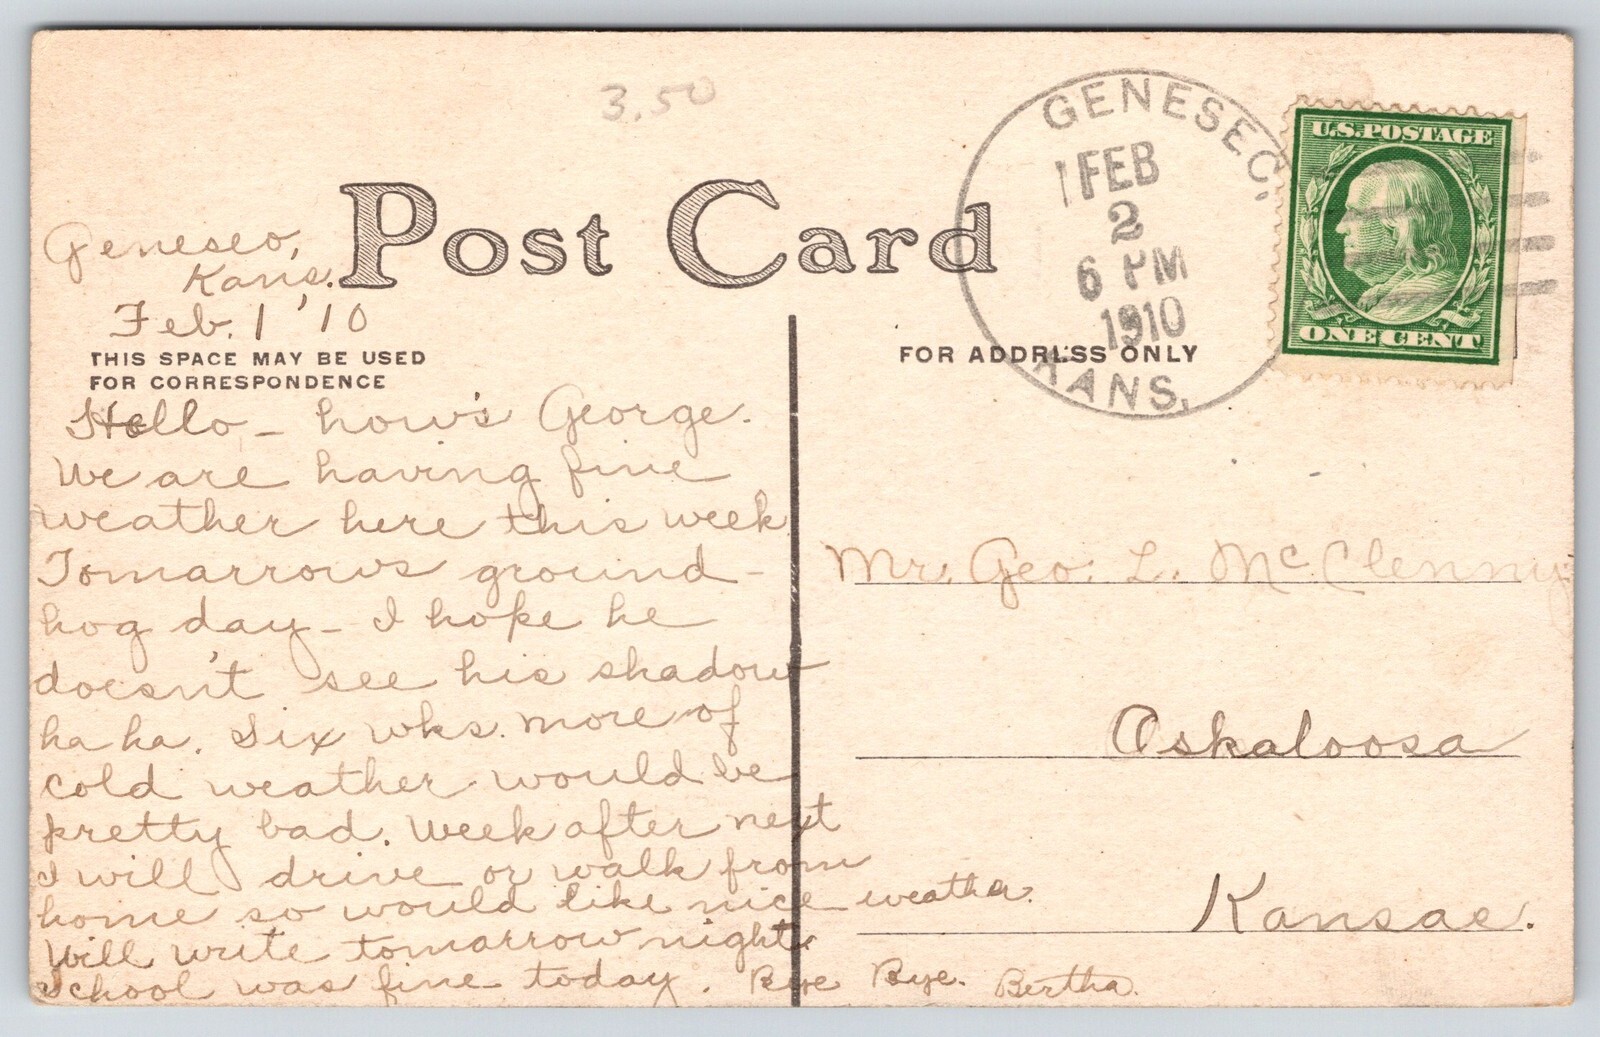 3.50
Post Card
GENESEO,
FEB
2
6 PM
1910
KANS.
U.S. POSTAGE
ONE CENT
Geneseo,
Kans.
Feb. 1 '10
THIS SPACE MAY BE USED
FOR CORRESPONDENCE
FOR ADDRESS ONLY
Hello - how's George.
We are having fine
weather here this week
Tomarrows ground-
hog day - I hope he
doesn't see his shadow
ha ha. Six wks. more of
cold weather would be
pretty bad. Week after next
I will drive or walk from
home so would like nice weather.
Will write tomarrow night.
School was fine today. Bye Bye. Bertha.
Mr. Geo. L. McClenny
Oskaloosa
Kansas.